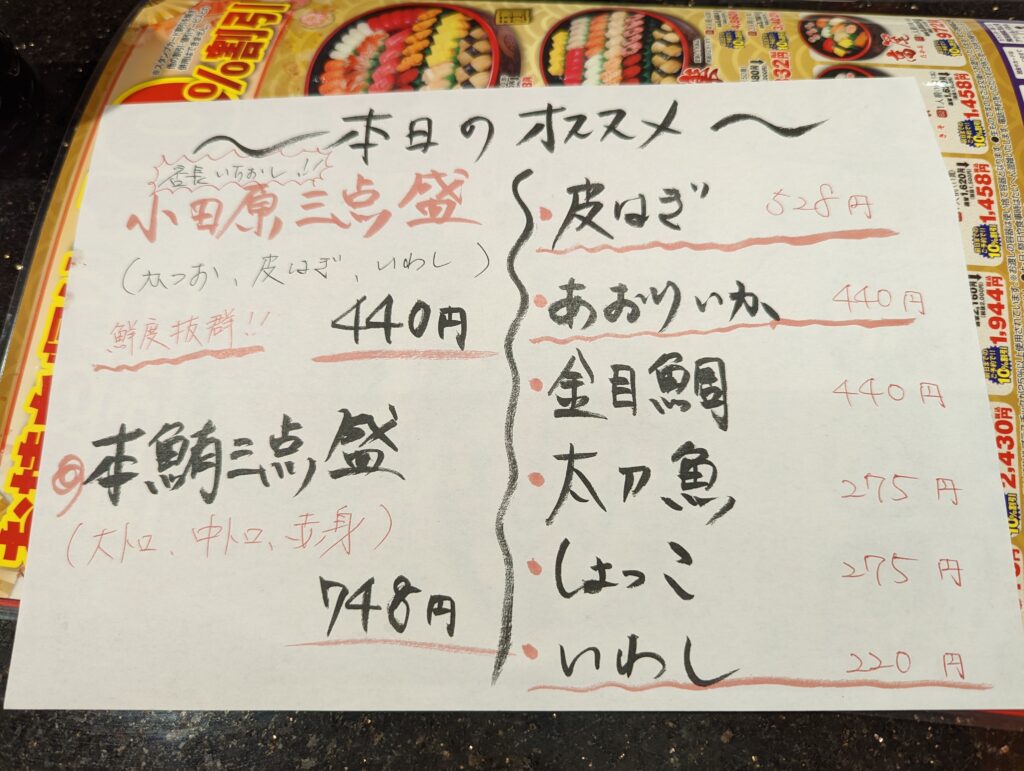 ～本日のオススメ～
店長いちおし!!
小田原三点盛
(かつお、皮はぎ、いわし)
鮮度抜群!!
440円
本鮪三点盛
(大トロ、中トロ、赤身)
748円
・皮はぎ 528円
・あおりいか 440円
・金目鯛 440円
・太刀魚 275円
・しょっこ 275円
・いわし 220円
%割引
1,458円
1,458円
1,944円
2,430円